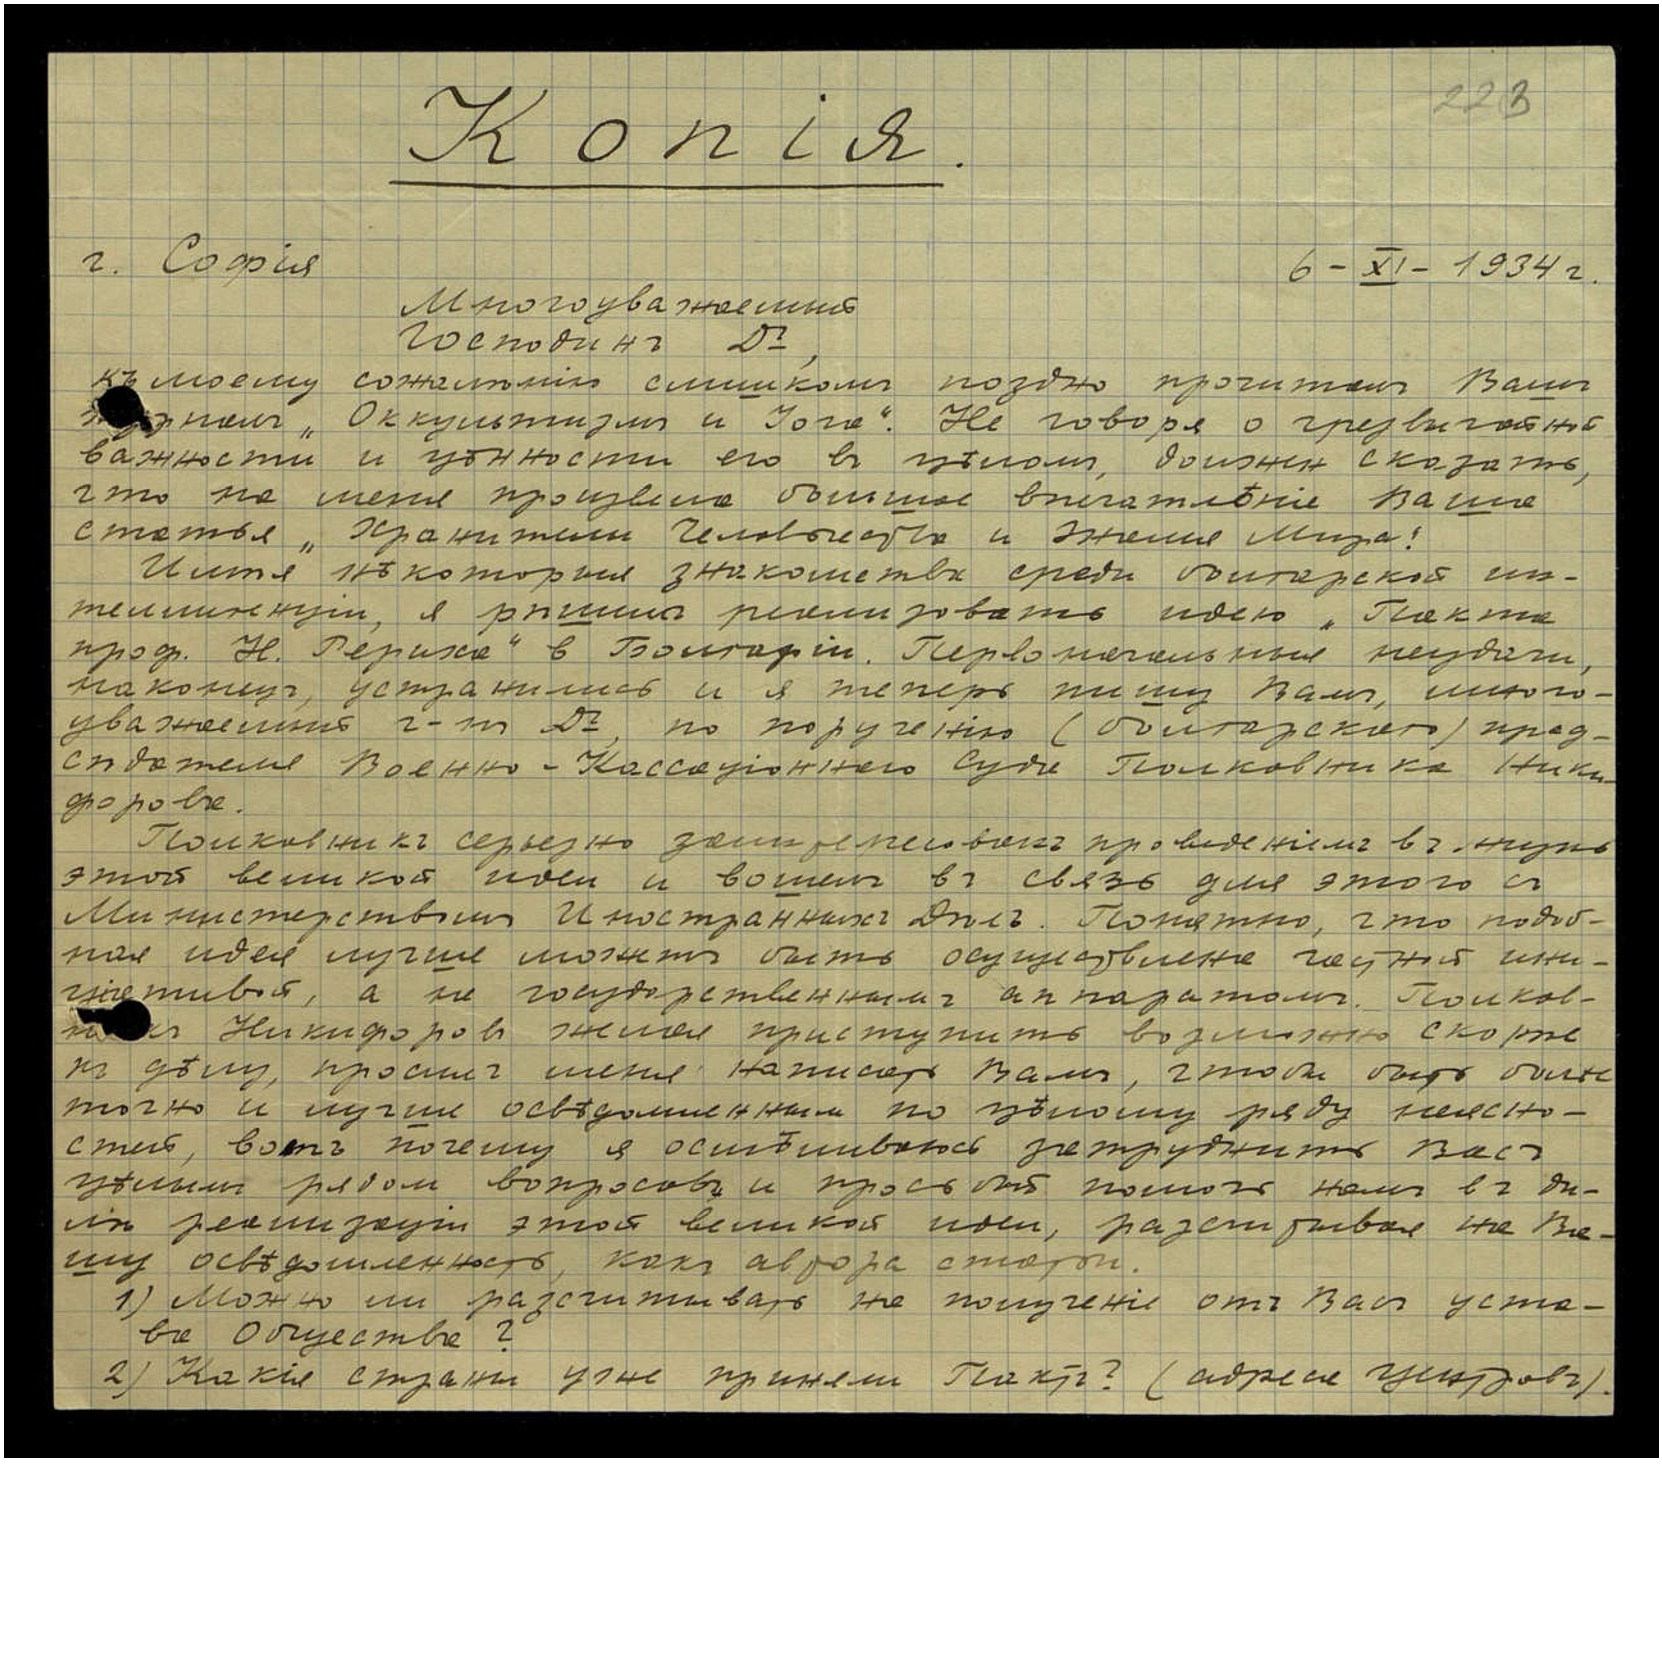 223
Копія.
г. Софія 6-XI-1934 г.
Многоуважаемый
Господинъ Dr,
къ моему сожалѣнію слишкомъ поздно прочиталъ Вашъ
журналъ „Оккультизмъ и Іога“. Не говоря о чрезвычайной
важности и цѣнности его въ цѣломъ, долженъ сказать,
что на меня произвела большое впечатлѣніе Ваша
статья „Хранители Человѣчества и Знамя Мира“.
Имѣя нѣкоторыя знакомства среди болгарской ин-
теллигенціи, я рѣшилъ реализовать идею „Пакта
проф. Н. Рериха“ в Болгаріи. Первоначальныя неудачи,
наконецъ, устранились и я теперь пишу Вамъ, много-
уважаемый г-нъ Dr, по порученію (болгарскаго) пред-
сѣдателя Военно-Кассаціоннаго Суда Полковника Ники-
форова.
Полковникъ серьезно заинтересованъ проведеніемъ въ жизнь
этой великой идеи и вошелъ въ связь для этого съ
Министерствомъ Иностранныхъ Дѣлъ. Понятно, что подоб-
ная идея лучше можетъ быть осуществлена частной ини-
ціативой, а не государственнымъ аппаратомъ. Полков-
никъ Никифоровъ желая приступить возможно скорѣе
къ дѣлу, просилъ меня написать Вамъ, чтобы быть болѣе
точно и лучше освѣдомленнымъ по цѣлому ряду неясно-
стей, вотъ почему я осмѣливаюсь затруднить Васъ
цѣлымъ рядом вопросовъ и просьбой помочь намъ въ дѣ-
лѣ реализаціи этой великой идеи, разсчитывая на Ва-
шу освѣдомленность, какъ автора статьи.
1) Можно ли разсчитывать на полученіе отъ Васъ уста-
ва Общества?
2) Какія страны уже приняли Пактъ? (адреса центровъ).